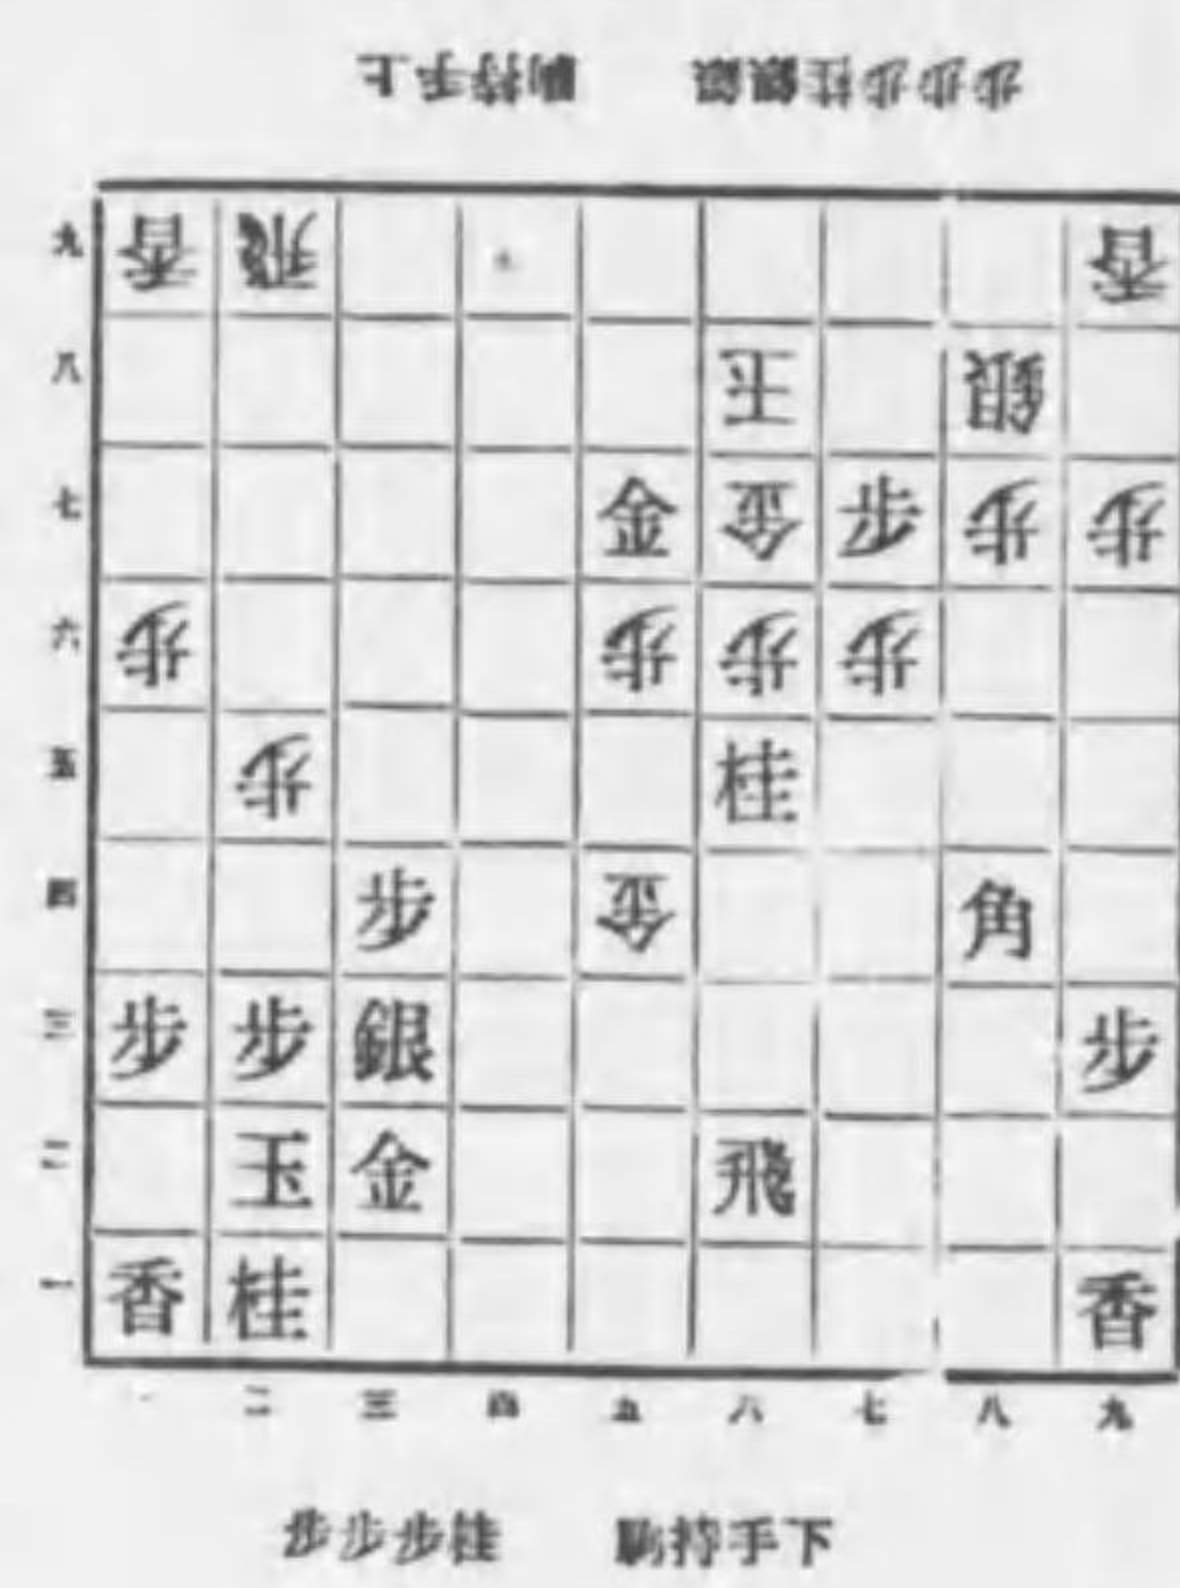 上手持駒 銀銀桂歩歩歩
九 香 飛 香
八 玉 銀
七 金 金 歩 歩 歩
六 歩 歩 歩 歩
五 歩 桂
四 歩 金 角
三 歩 歩 銀 歩
二 玉 金 飛
一 香 桂 香
一 二 三 四 五 六 七 八 九
下手持駒 桂歩歩歩